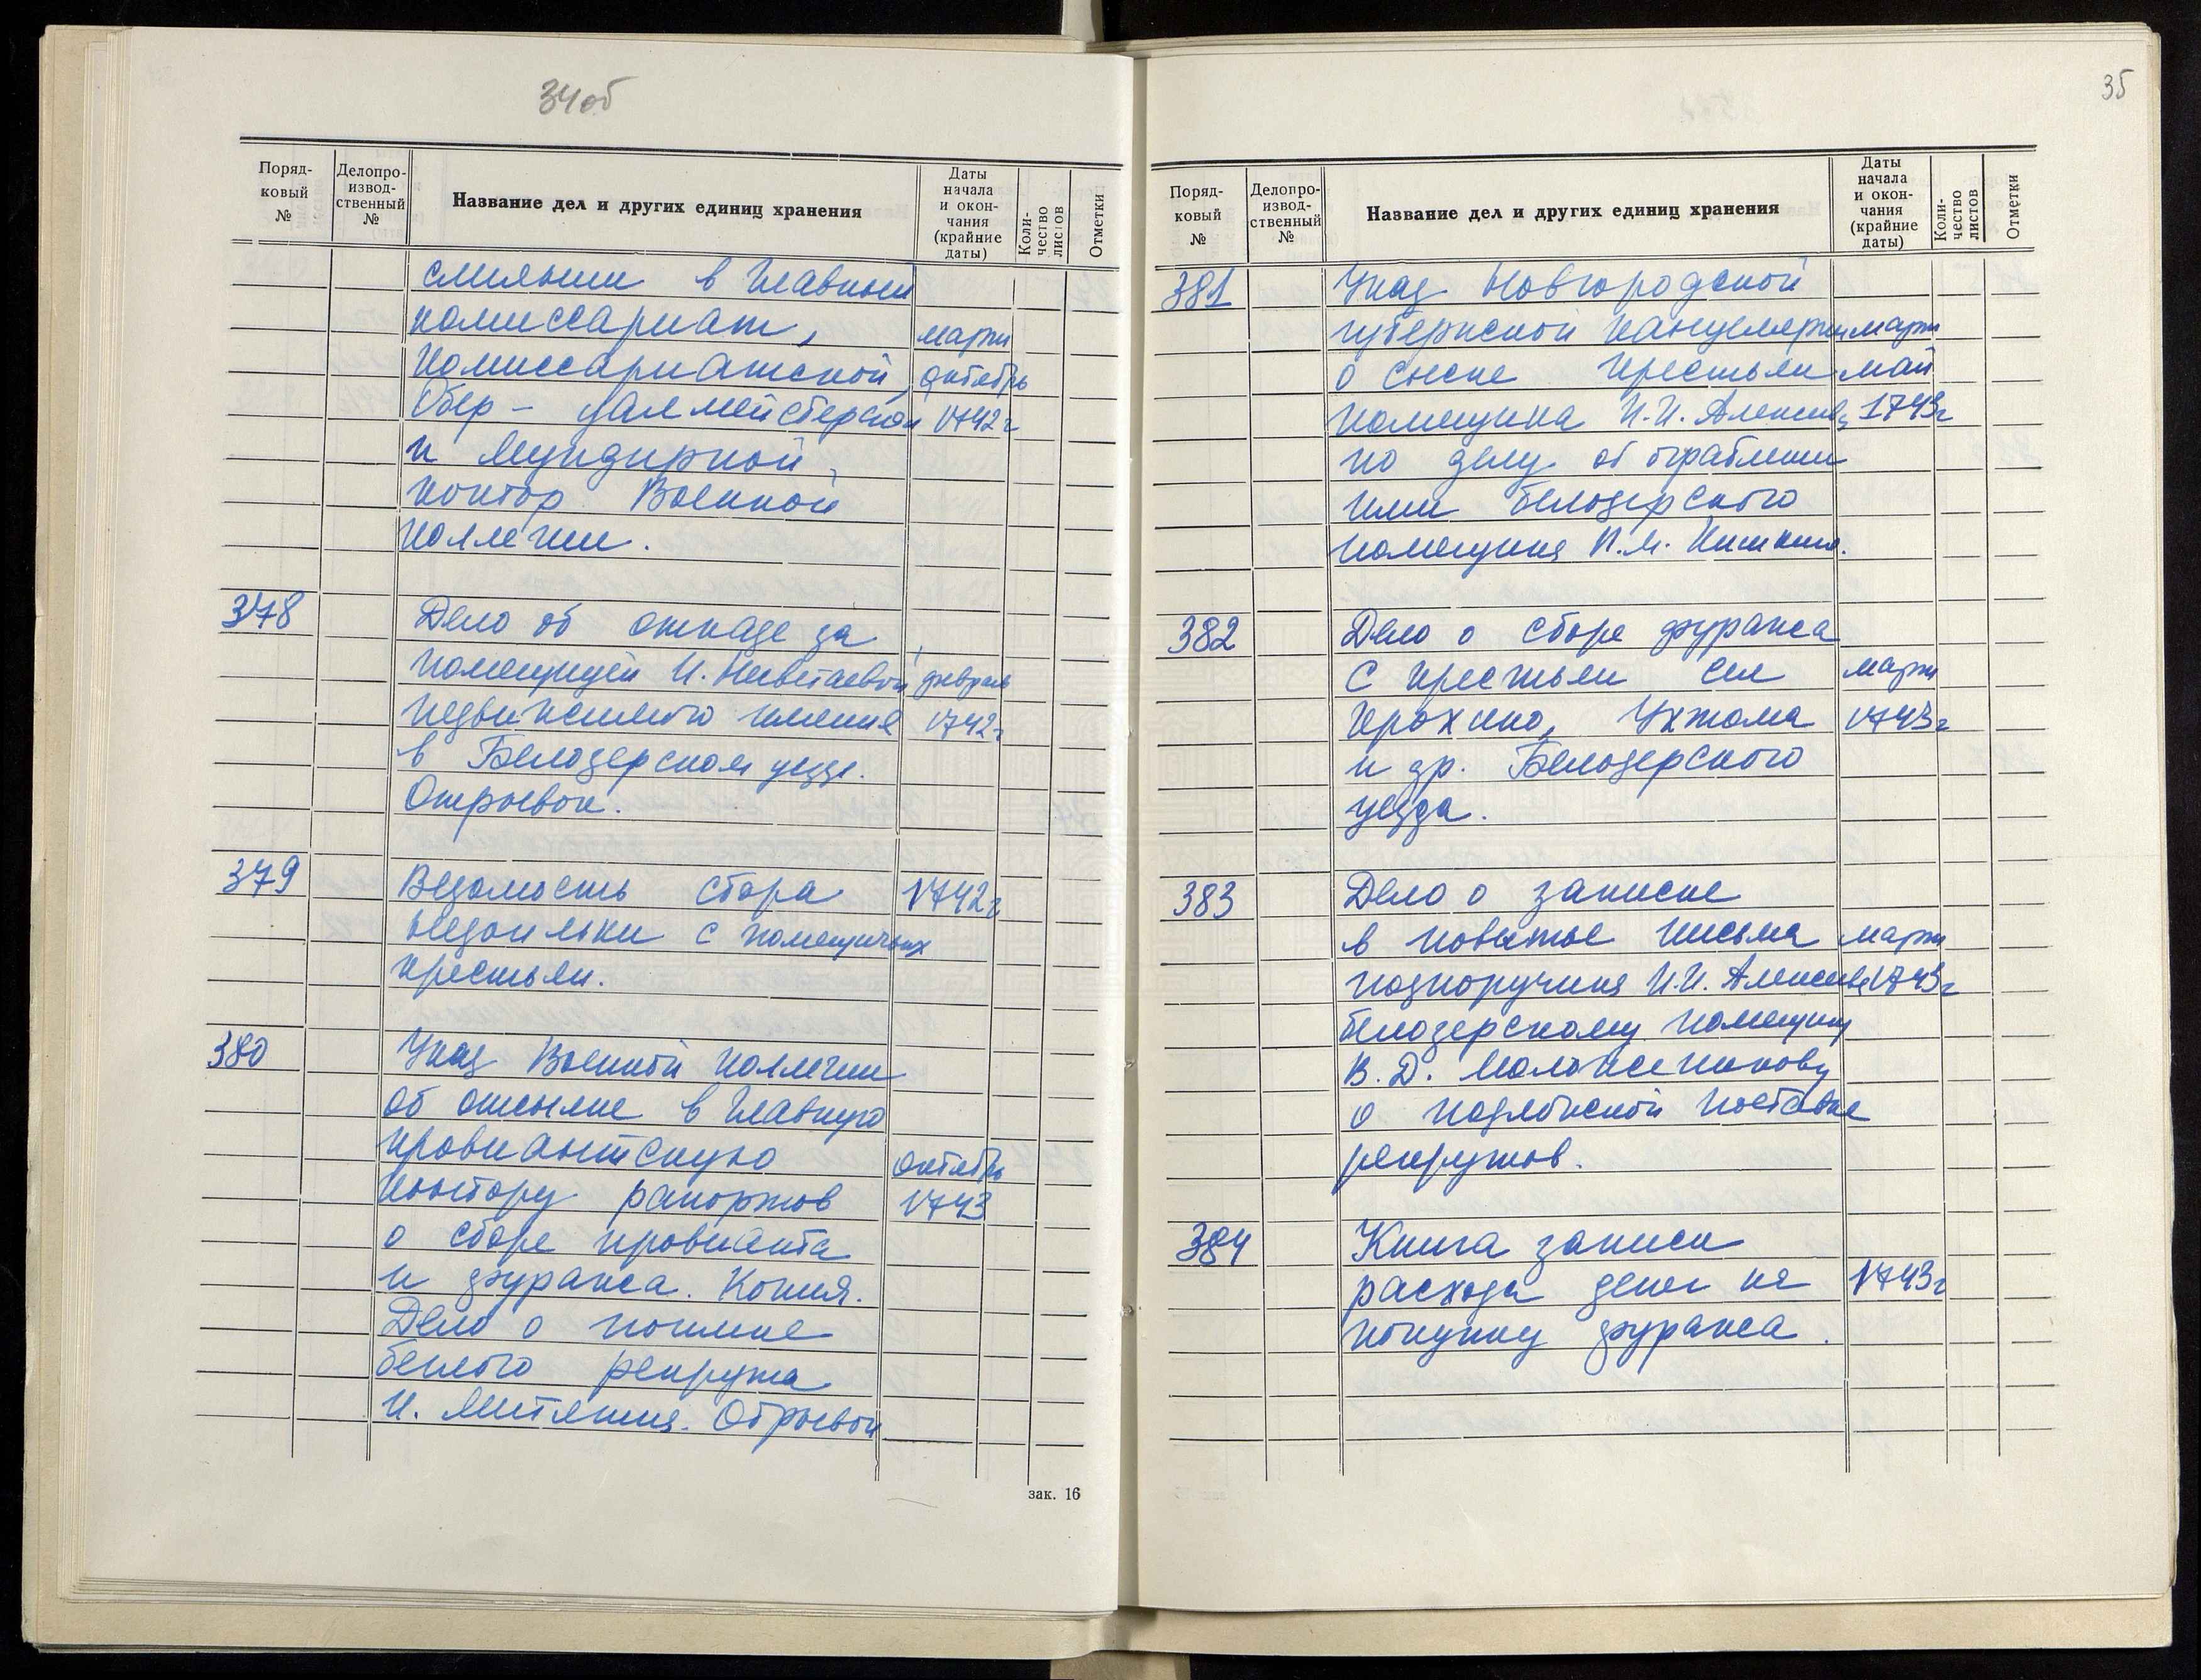 34об
Поряд-
ковый
№
Делопро-
извод-
ственный
№
Название дел и других единиц хранения
Даты
начала
и окон-
чания
(крайние
даты)
Коли-
чество
листов
Отметки
в Главный
комиссариат, март
Комиссариатской, октябрь
Обер - цалмейстерской 1742г
и Мундирной
контор Военной
коллегии.
378 Дело об отказе за
помещицей И. Неветаевой февраль
недвижимого имения 1742г
в Белозерском уезде.
Отрывок.
379 Ведомость сбора 1742г
недоимки с помещичьих
крестьян.
380 Указ Военной коллегии
об отсылке в Главную
провиантскую октябрь
контору рапортов 1743
о сборе провианта
и фуража. Копия.
Дело о поимке
беглого рекрута
И. Митякина. Отрывок
зак. 16
35
Поряд-
ковый
№
Делопро-
извод-
ственный
№
Название дел и других единиц хранения
Даты
начала
и окон-
чания
(крайние
даты)
Коли-
чество
листов
Отметки
381 Указ Новгородской
губернской канцелярии март
о сыске крестьян май
помещика И.И. Алексеева 1743г
по делу об ограблении
ими белозерского
помещика П.М. Кишкина.
382 Дело о сборе фуража
с крестьян сел март
Крохино, Ухтома 1743г
и др. Белозерского
уезда.
383 Дело о записке
в повытье письма март
подпоручика И.И. Алексеева 1743г
белозерскому помещику
В.Д. Моложенинову
о подложной поставке
рекрутов.
384 Книга записи
расхода денег на 1743г
покупку фуража.